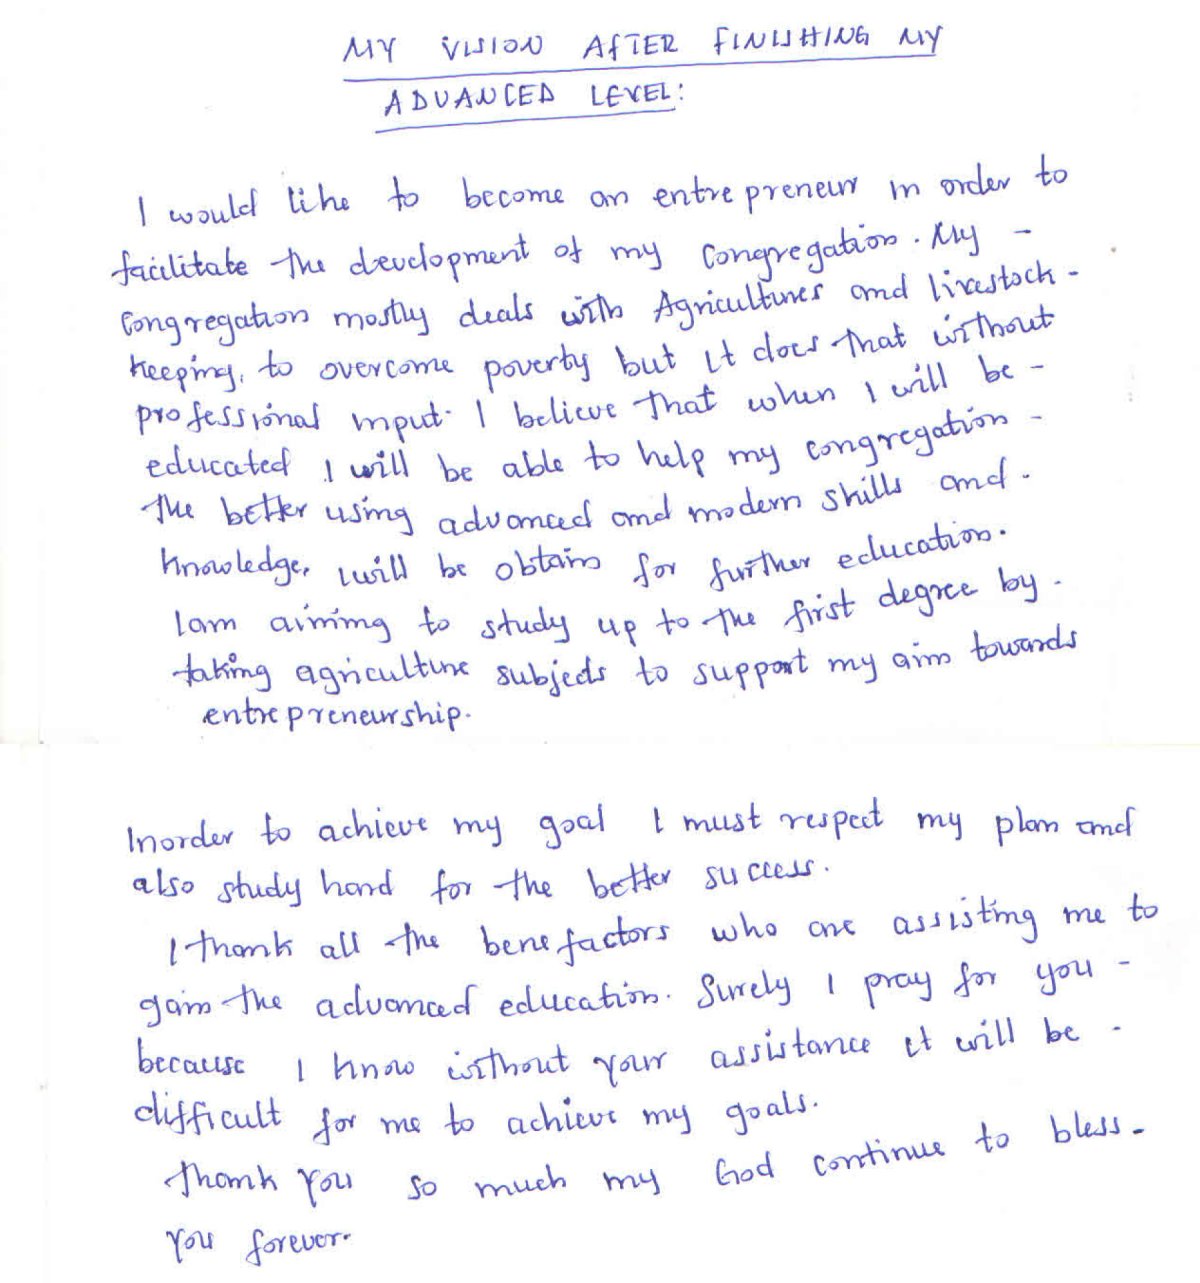 MY VISION AFTER FINISHING MY
ADVANCED LEVEL:
I would like to become an entrepreneur in order to
facilitate the development of my congregation. My -
Congregation mostly deals with Agricultures and livestock -
keeping, to overcome poverty but it does that without
professional input. I believe that when I will be -
educated I will be able to help my congregation -
the better using advanced and modern skills and -
knowledge, will be obtain for further education.
I am aiming to study up to the first degree by -
taking agriculture subjects to support my aim towards
entrepreneurship.
Inorder to achieve my goal I must respect my plan and
also study hard for the better success.
I thank all the benefactors who are assisting me to
gain the advanced education. Surely I pray for you -
because I know without your assistance it will be -
difficult for me to achieve my goals.
Thank you so much my God continue to bless -
you forever.